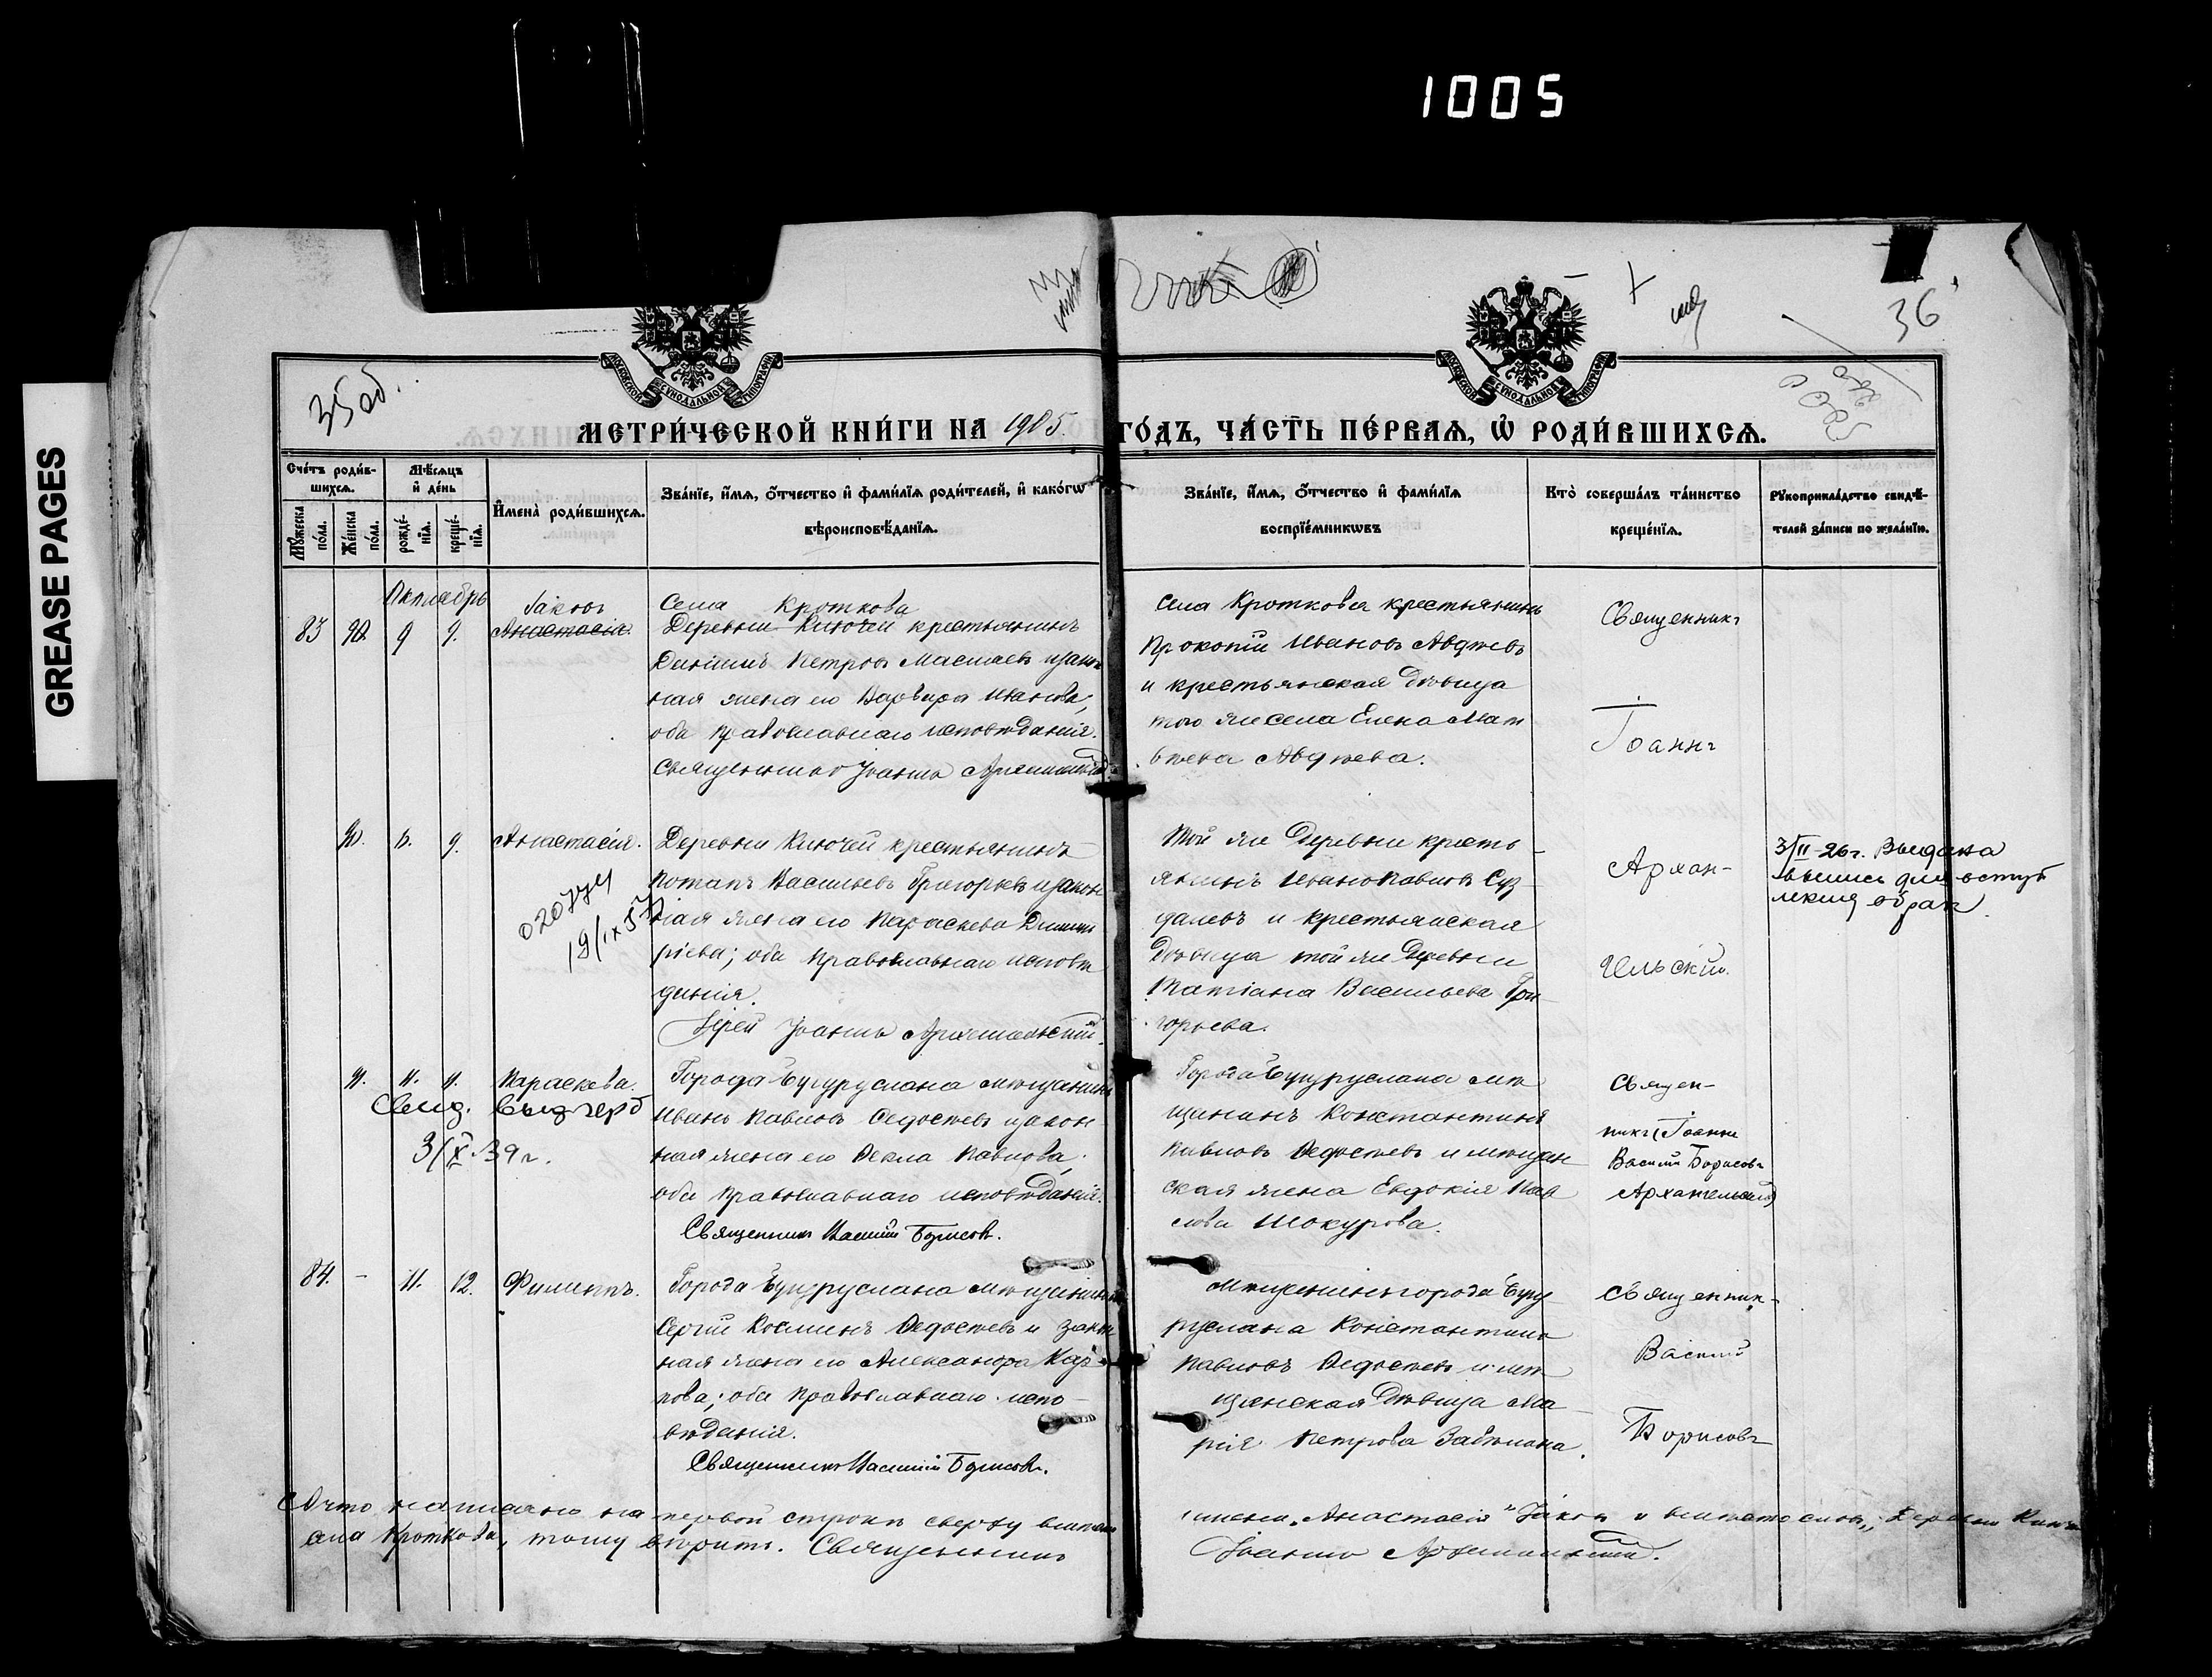 1005
GREASE PAGES
35 об.
36
МЕТРИ́ЧЕСКОЙ КНИ́ГИ НА 1905 ГО́ДЪ, ЧА́СТЬ ПЕ́РВАѦ, Ѡ҆ РОДИ́ВШИХСѦ.
Сче́тъ роди́в-
шихсѧ.
Мѣ́сѧцъ
и҆ де́нь
Мꙋ́жеска по́ла.
Же́нска по́ла.
рожде́-
нїѧ.
креще́-
нїѧ.
И҆мена̀ роди́вшихсѧ.
Зва́нїе, и҆́мѧ, ѻ҆́тчество и҆ фами́лїѧ роди́телей, и҆ како́гѡ
вѣроисповѣ́данїѧ.
Зва́нїе, и҆́мѧ, ѻ҆́тчество и҆ фами́лїѧ
воспрїе́мникѡвъ
Кто̀ соверша́лъ та́инство
креще́нїѧ.
Рꙋкоприкла́дство свидѣ́-
телей за́писи по жела́нїю.
Октябрь
83 90 9 9.
Іаковъ
Анастасія
Села Кроткова
Деревни Ключей крестьянинъ
Петровъ и закон
ная жена его Варвара Иванова,
оба православнаго исповѣданія.
Священникъ Іоаннъ Архангельскій
Села Кроткова крестьянинъ
Прокопій Ивановъ Авдѣевъ
и крестьянская дѣвица
того же села Елена Мат
вѣева Авдѣева.
Священникъ
Іоаннъ
90. 6. 9. Анастасія.
Деревни Ключей крестьянинъ
Потапъ Васильевъ Григорьевъ и закон
ная жена его Параскева Димит
ріева; оба православнаго исповѣ
данія.
Іерей Іоаннъ Архангельскій.
Той же деревни кресть-
янинъ Иванъ Павловъ Суз-
далевъ и крестьянская
дѣвица той же деревни
Татіана Васильева Гри-
горьева.
Архан-
гельскій.
3/II-26 г. Выдана
выпись для вступ
ленія в брак
91. 11. 11. Параскева.
Свид. выд
3/X 39 г.
Города Бугуруслана мѣщанинъ
Иванъ Павловъ Ѳедосѣевъ и закон
ная жена его Ѳекла Павлова,
оба православнаго исповѣданія.
Священникъ Василій Борисовъ.
Города Бугуруслана мѣ
щанинъ Константинъ
Павловъ Ѳедосѣевъ и мѣщан
ская жена Евдокія Пав
лова Шокурова.
Священ-
никъ (Іоаннъ
Василій Борисовъ
Архангельскій)
84. - 11. 12. Филиппъ.
Города Бугуруслана мѣщанинъ
Сергій Косминъ Ѳедосѣевъ и закон
ная жена его Александра Кар
пова; оба православнаго испо-
вѣданія.
Священникъ Василій Борисовъ.
Мѣщанинъ города Бугу
руслана Константинъ
Павловъ Ѳедосѣевъ и мѣ
щанская дѣвица Ма-
рія Петрова
Священник-
Василій
Борисовъ
что написано на первой строкѣ сверху вмѣсто
имени „Анастасія" Іаковъ и вмѣсто слова „Деревни Ключей"
села Кроткова, тому вѣрить. Священникъ
Іоаннъ Архангельскій.